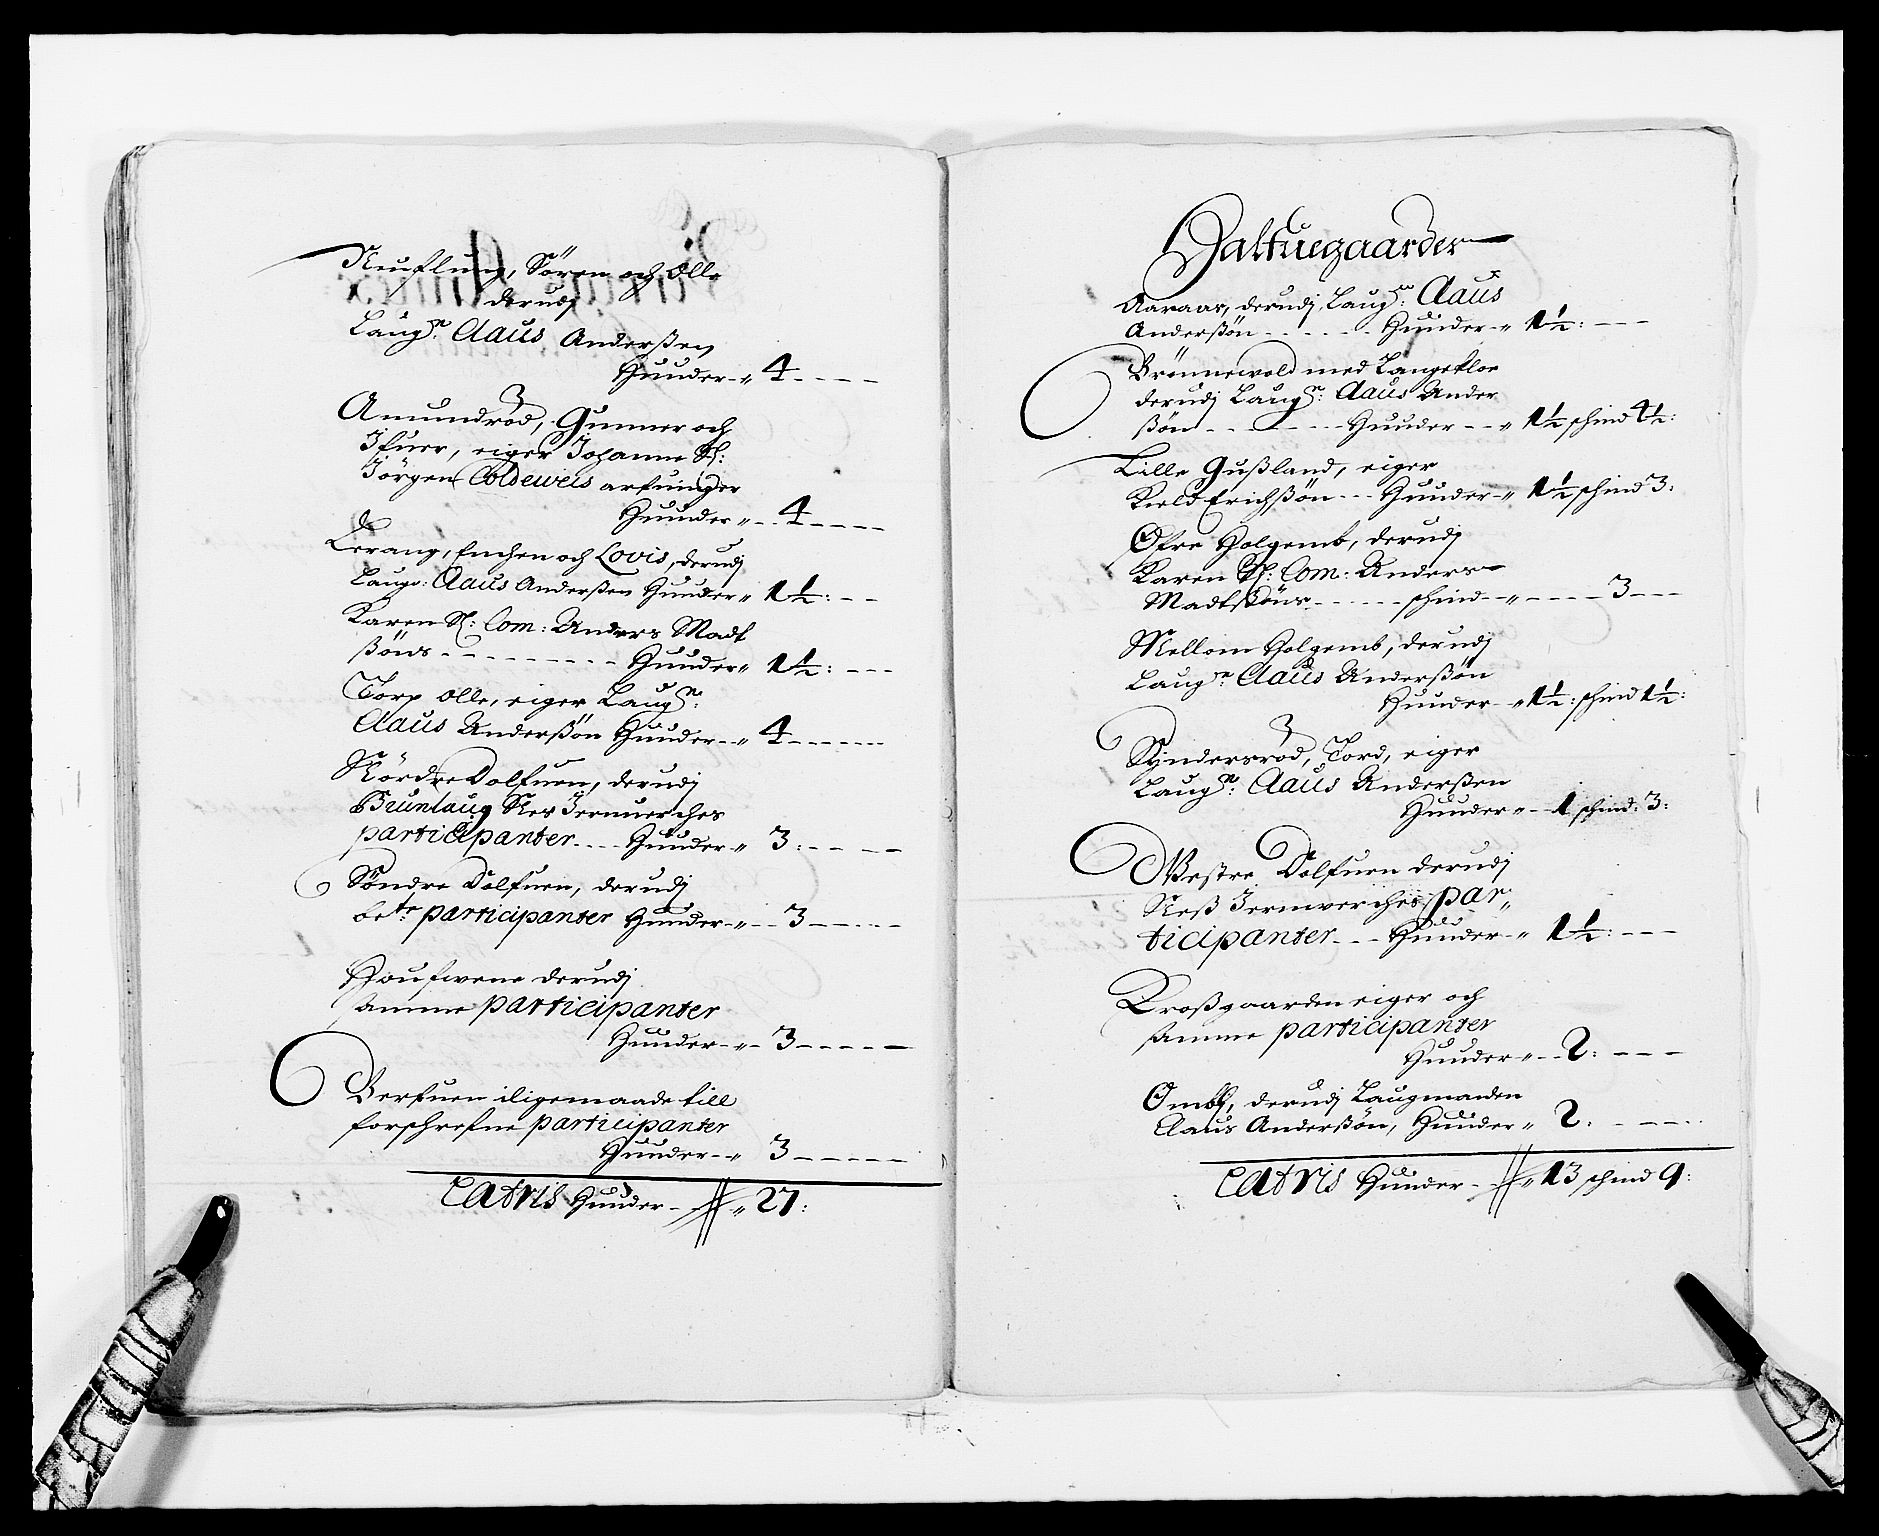 Neuflung, Sören och Olle
derudj
Laugm: Claus Anderßen
Huuder - „ 4 - - - -
Amundröd, Gunner och
Ifuer, eiger Johanne Sl:
Jörgen Coldeweis arfuinger
Huuder „ - - 4 - - - -
Lerang, Enchen och Lovis, derudj
Laugm: Claus Anderßen Huuder „ 1½: - - -
Karen Sl: Com: Anders Madt
ßöns - - - - - - - - - Huuder „ 1½: - - -
Torp Olle, eiger Laugm:
Claus Anderßön Huuder - - „ 4 - - - - -
Nördre Dolfuen, derudj
Brunlaug Nes Jernuerches
participanter - - - - Huuder - „ 3: - - - -
Söndre Dolfuen, derudj
bete: participanter Huuder - „ - - 3 - - - - -
Houfwene derudj
samme participanter
Huuder - „ - 3 - - - - -
Berfuen iligemaade till
forschrefne participanter
Huuder - - „ 3 - - - - -
Latris Huuder - - // „ 27:
Halfuegaarder
Aaraas, derudj, Laugm: Claus
Anderßön - - - - - - Huuder - „ 1½: - - -
Brönnewold med Langekloe
derudj Laugm: Claus Ander
ßön - - - - - - - - Huuder - - „ 1½ schind 4½:
Lille Gußland, eiger
Kield Erichßön - - - Huuder - „ 1½ schind 3:
Öfre Holgemb, derudj
Karen Sl: Com: Anders
Madtsöns - - - - - - schind - - „ - - - - 3 - - -
Mellom Holgemb, derudj
Laugm: Claus Anderßön
Huuder - „ 1½: schind 1½:
Skindersröd, Tord, eiger
Laugm: Claus Anderßen
Huuder „ - - 1 schind: 3:
Westre Dolfuen derudj
Neß Jernwerches par„
ticipanter - - - Huuder - „ 1½: - - -
Kroßgaarden eiger och
samme participanter
Huuder „ - - 2: - - - -
Ombs, derudj Laugmanden
Claus Anderßön, Huuder „ 2: - - - -
Latris Huuder - - // „ 13 schind 9: